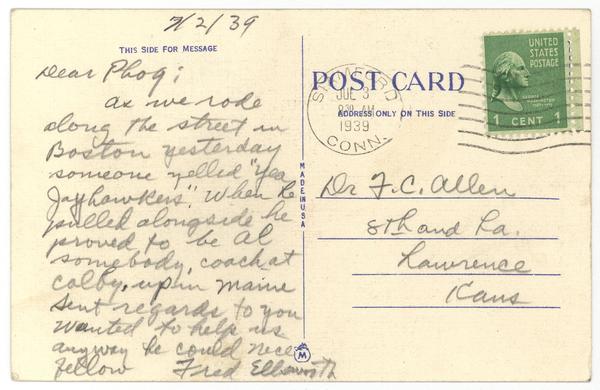 7/2/39
THIS SIDE FOR MESSAGE
Dear Phog;
as we rode
along the street in
Boston yesterday
someone yelled "Yea
Jayhawkers". When he
pulled alongside he
proved to be Al
somebody, coach at
Colby, up in Maine
Sent regards to you
Wanted to help us
anyway he could nice
fellow Fred Ellsworth
MADE IN USA
M
POST CARD
ADDRESS ONLY ON THIS SIDE
STAMFORD
JUL 3
8 30 AM
1939
CONN.
UNITED
STATES
POSTAGE
GEORGE
WASHINGTON
1 CENT 1
Dr F. C. Allen
8th and La.
Lawrence
Kans